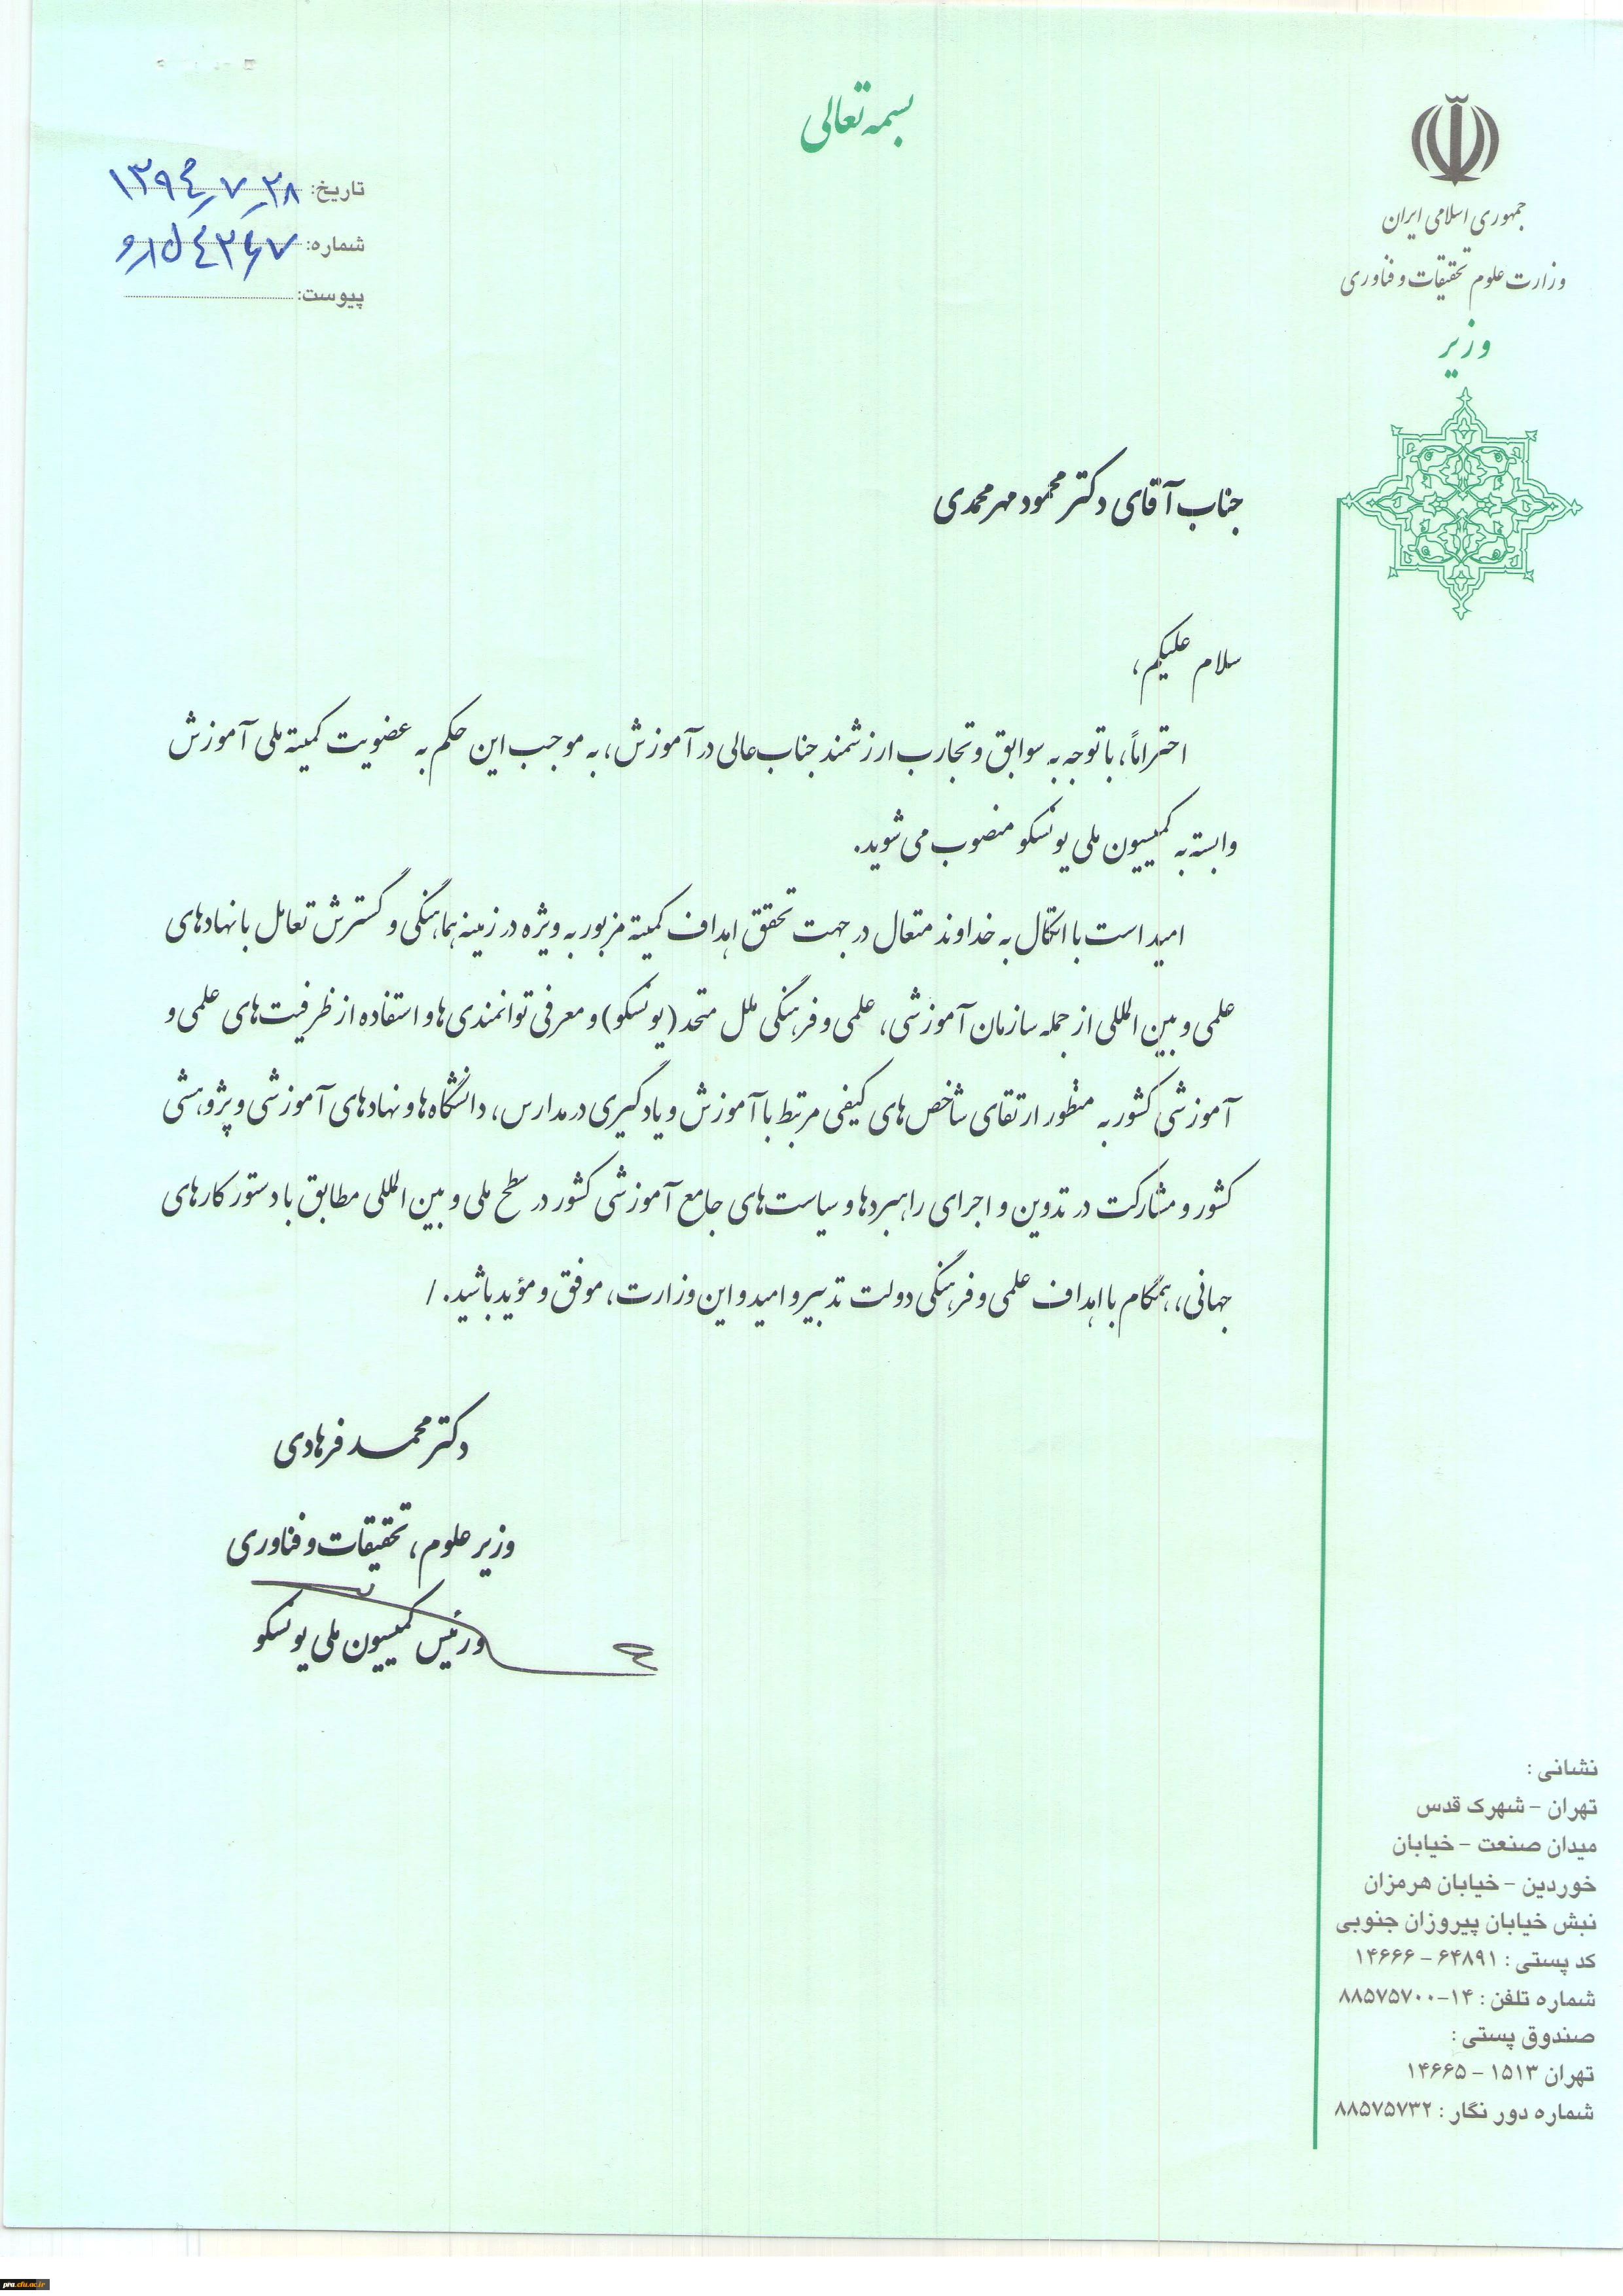 بسمه تعالی
جمهوری اسلامی ایران
وزارت علوم تحقیقات و فناوری
وزیر
تاریخ: ۱۳۹۴/۷/۲۸
شماره: و/۱۵۴۲۶۷
پیوست:
جناب آقای دکتر محمود مهرمحمدی
سلام علیکم،
احتراماً، با توجه به سوابق و تجارب ارزشمند جناب‌عالی در آموزش، به موجب این حکم به عضویت کمیته ملی آموزش
وابسته به کمیسیون ملی یونسکو منصوب می‌شوید.
امید است با اتکال به خداوند متعال در جهت تحقق اهداف کمیته مزبور به ویژه در زمینه هماهنگی و گسترش تعامل با نهادهای
علمی و بین المللی از جمله سازمان آموزشی، علمی و فرهنگی ملل متحد (یونسکو) و معرفی توانمندی‌ها و استفاده از ظرفیت‌های علمی و
آموزشی کشور به منظور ارتقای شاخص‌های کیفی مرتبط با آموزش و یادگیری در مدارس، دانشگاه‌ها و نهادهای آموزشی و پژوهشی
کشور و مشارکت در تدوین و اجرای راهبردها و سیاست‌های جامع آموزشی کشور در سطح ملی و بین المللی مطابق با دستور کارهای
جهانی، همگام با اهداف علمی و فرهنگی دولت تدبیر و امید و این وزارت، موفق و مؤید باشید. /
دکتر محمد فرهادی
وزیر علوم، تحقیقات و فناوری
و رئیس کمیسیون ملی یونسکو
نشانی :
تهران - شهرک قدس
میدان صنعت - خیابان
خوردین - خیابان هرمزان
نبش خیابان پیروزان جنوبی
کد پستی : ۶۴۸۹۱ - ۱۴۶۶۶
شماره تلفن : ۱۴-۸۸۵۷۵۷۰۰
صندوق پستی :
تهران ۱۵۱۳ - ۱۴۶۶۵
شماره دور نگار : ۸۸۵۷۵۷۳۲
pra.cfu.ac.ir